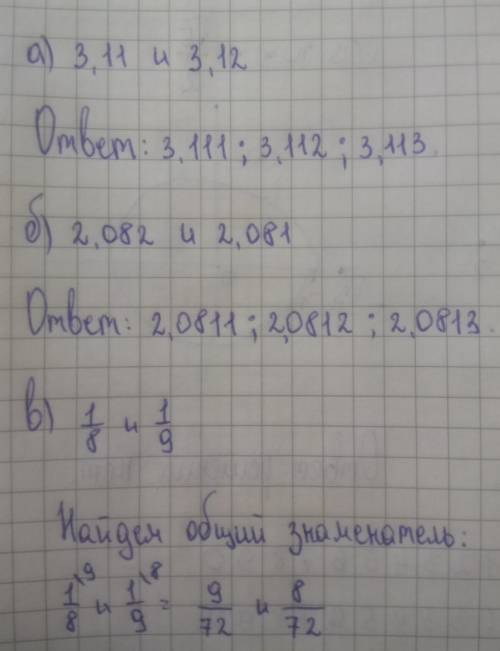 а) 3,11 и 3,12
Ответ: 3,111 ; 3,112 ; 3,113.
б) 2,082 и 2,081
Ответ: 2,0811 ; 2,0812 ; 2,0813.
в) 1/8 и 1/9
Найдем общий знаменатель:
1/8 \9 и 1/9 \8 = 9/72 и 8/72